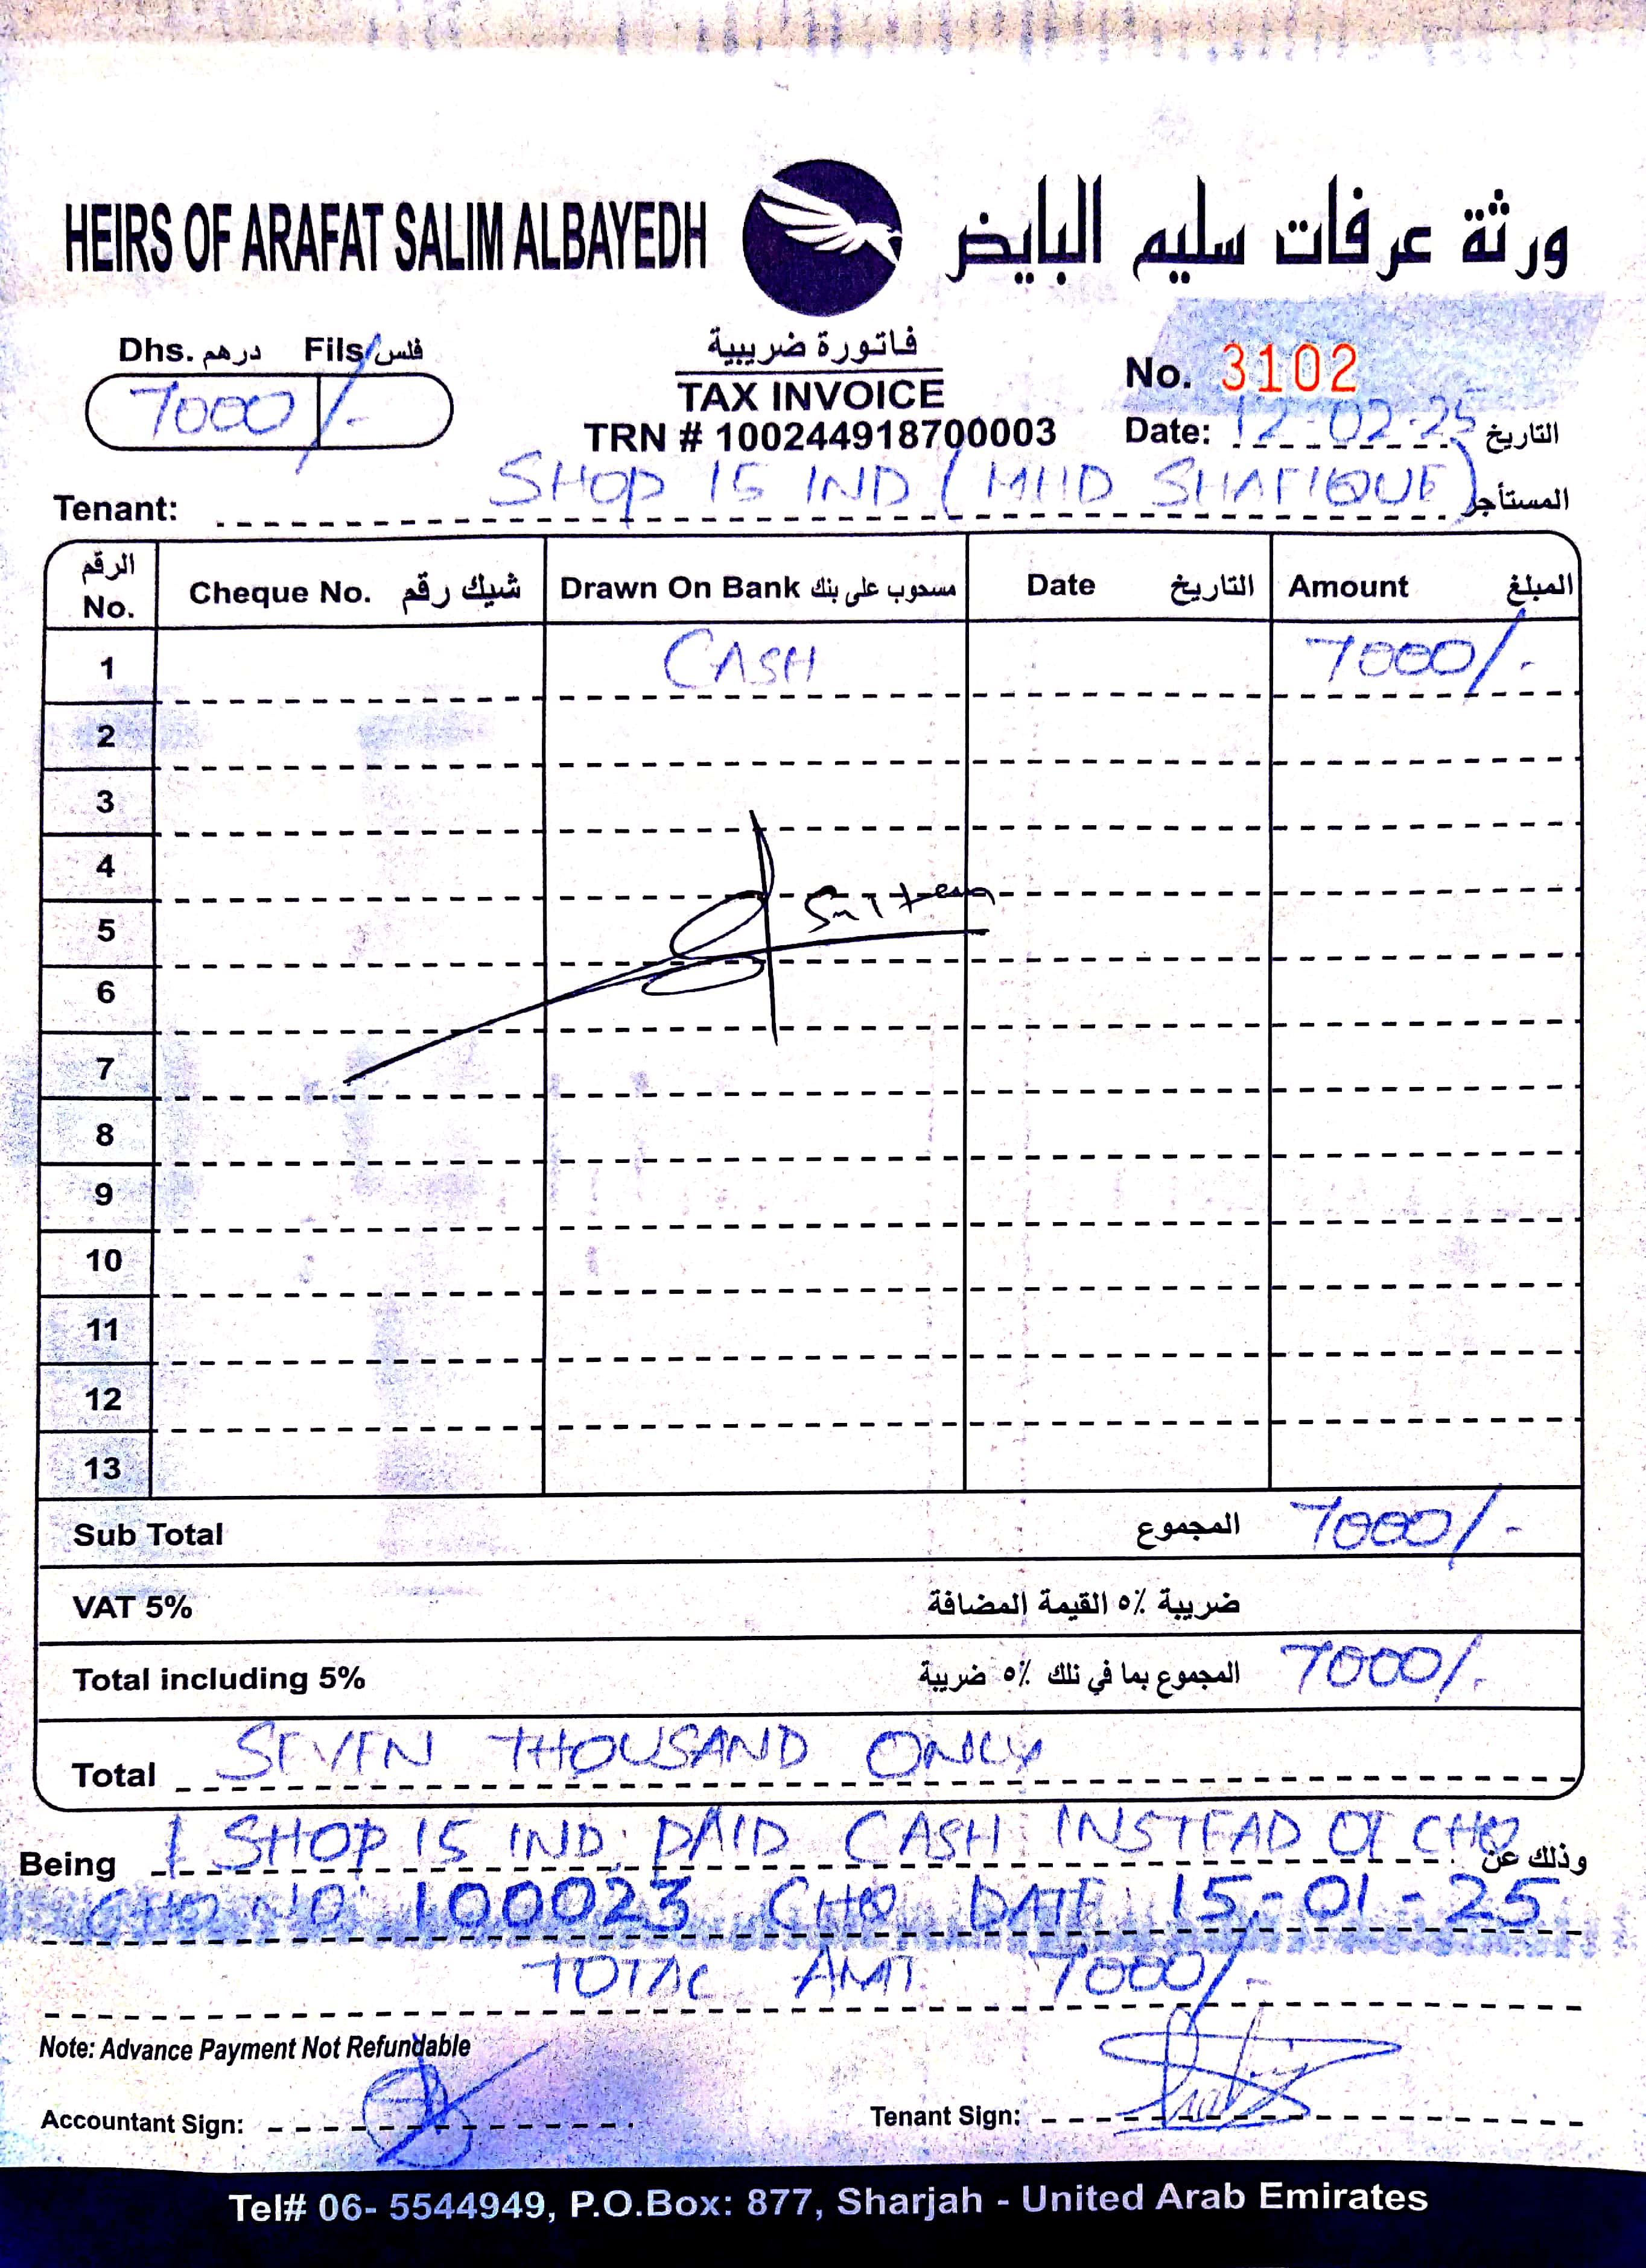 HEIRS OF ARAFAT SALIM ALBAYEDH ورثة عرفات سليم البايض
Dhs. درهم Fils فلس
7000/-
فاتورة ضريبية
TAX INVOICE
TRN # 100244918700003
No. 3102
Date: 12-02-25 التاريخ
Tenant: SHOP 15 IND (MHD SHAFIQUE) المستأجر
الرقم No. Cheque No. شيك رقم Drawn On Bank مسحوب على بنك Date التاريخ Amount المبلغ
1 CASH 7000/-
2
3
4
5
6
7
8
9
10
11
12
13
Sub Total المجموع 7000/-
VAT 5% ضريبة ٥٪ القيمة المضافة
Total including 5% المجموع بما في ذلك ٥٪ ضريبة 7000/-
Total SEVEN THOUSAND ONLY
Being SHOP 15 IND. PAID CASH INSTEAD OF CHQ وذلك عن
CHQ NO: 100023 CHQ DATE: 15-01-25
TOTAL AMT 7000/-
Note: Advance Payment Not Refundable
Accountant Sign: Tenant Sign:
Tel# 06- 5544949, P.O.Box: 877, Sharjah - United Arab Emirates